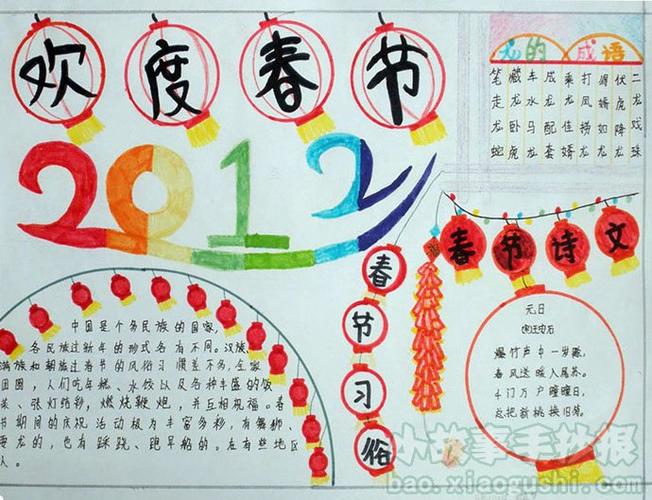 欢度春节
2012
龙的成语
笔走龙蛇
藏龙卧虎
车水马龙
成龙配套
乘龙佳婿
打凤捞龙
得婿如龙
伏虎降龙
二龙戏珠
春节诗文
元日
宋王安石
爆竹声中一岁除,
春风送暖入屠苏。
千门万户曈曈日,
总把新桃换旧符。
春节习俗
中国是个多民族的国家,
各民族过新年的形式各有不同。汉族、
满族和朝族过春节的风俗习惯差不多,全家
团圆,人们吃年糕、水饺以及各种丰盛的饭
菜、张灯结彩,燃烧鞭炮,并互相祝福。春
节期间的庆祝活动极为丰富多彩,有舞狮、
耍龙的,也有踩跷、跑旱船的。在有些地区
人。
小故事手抄报
bao.xiaogushi.com